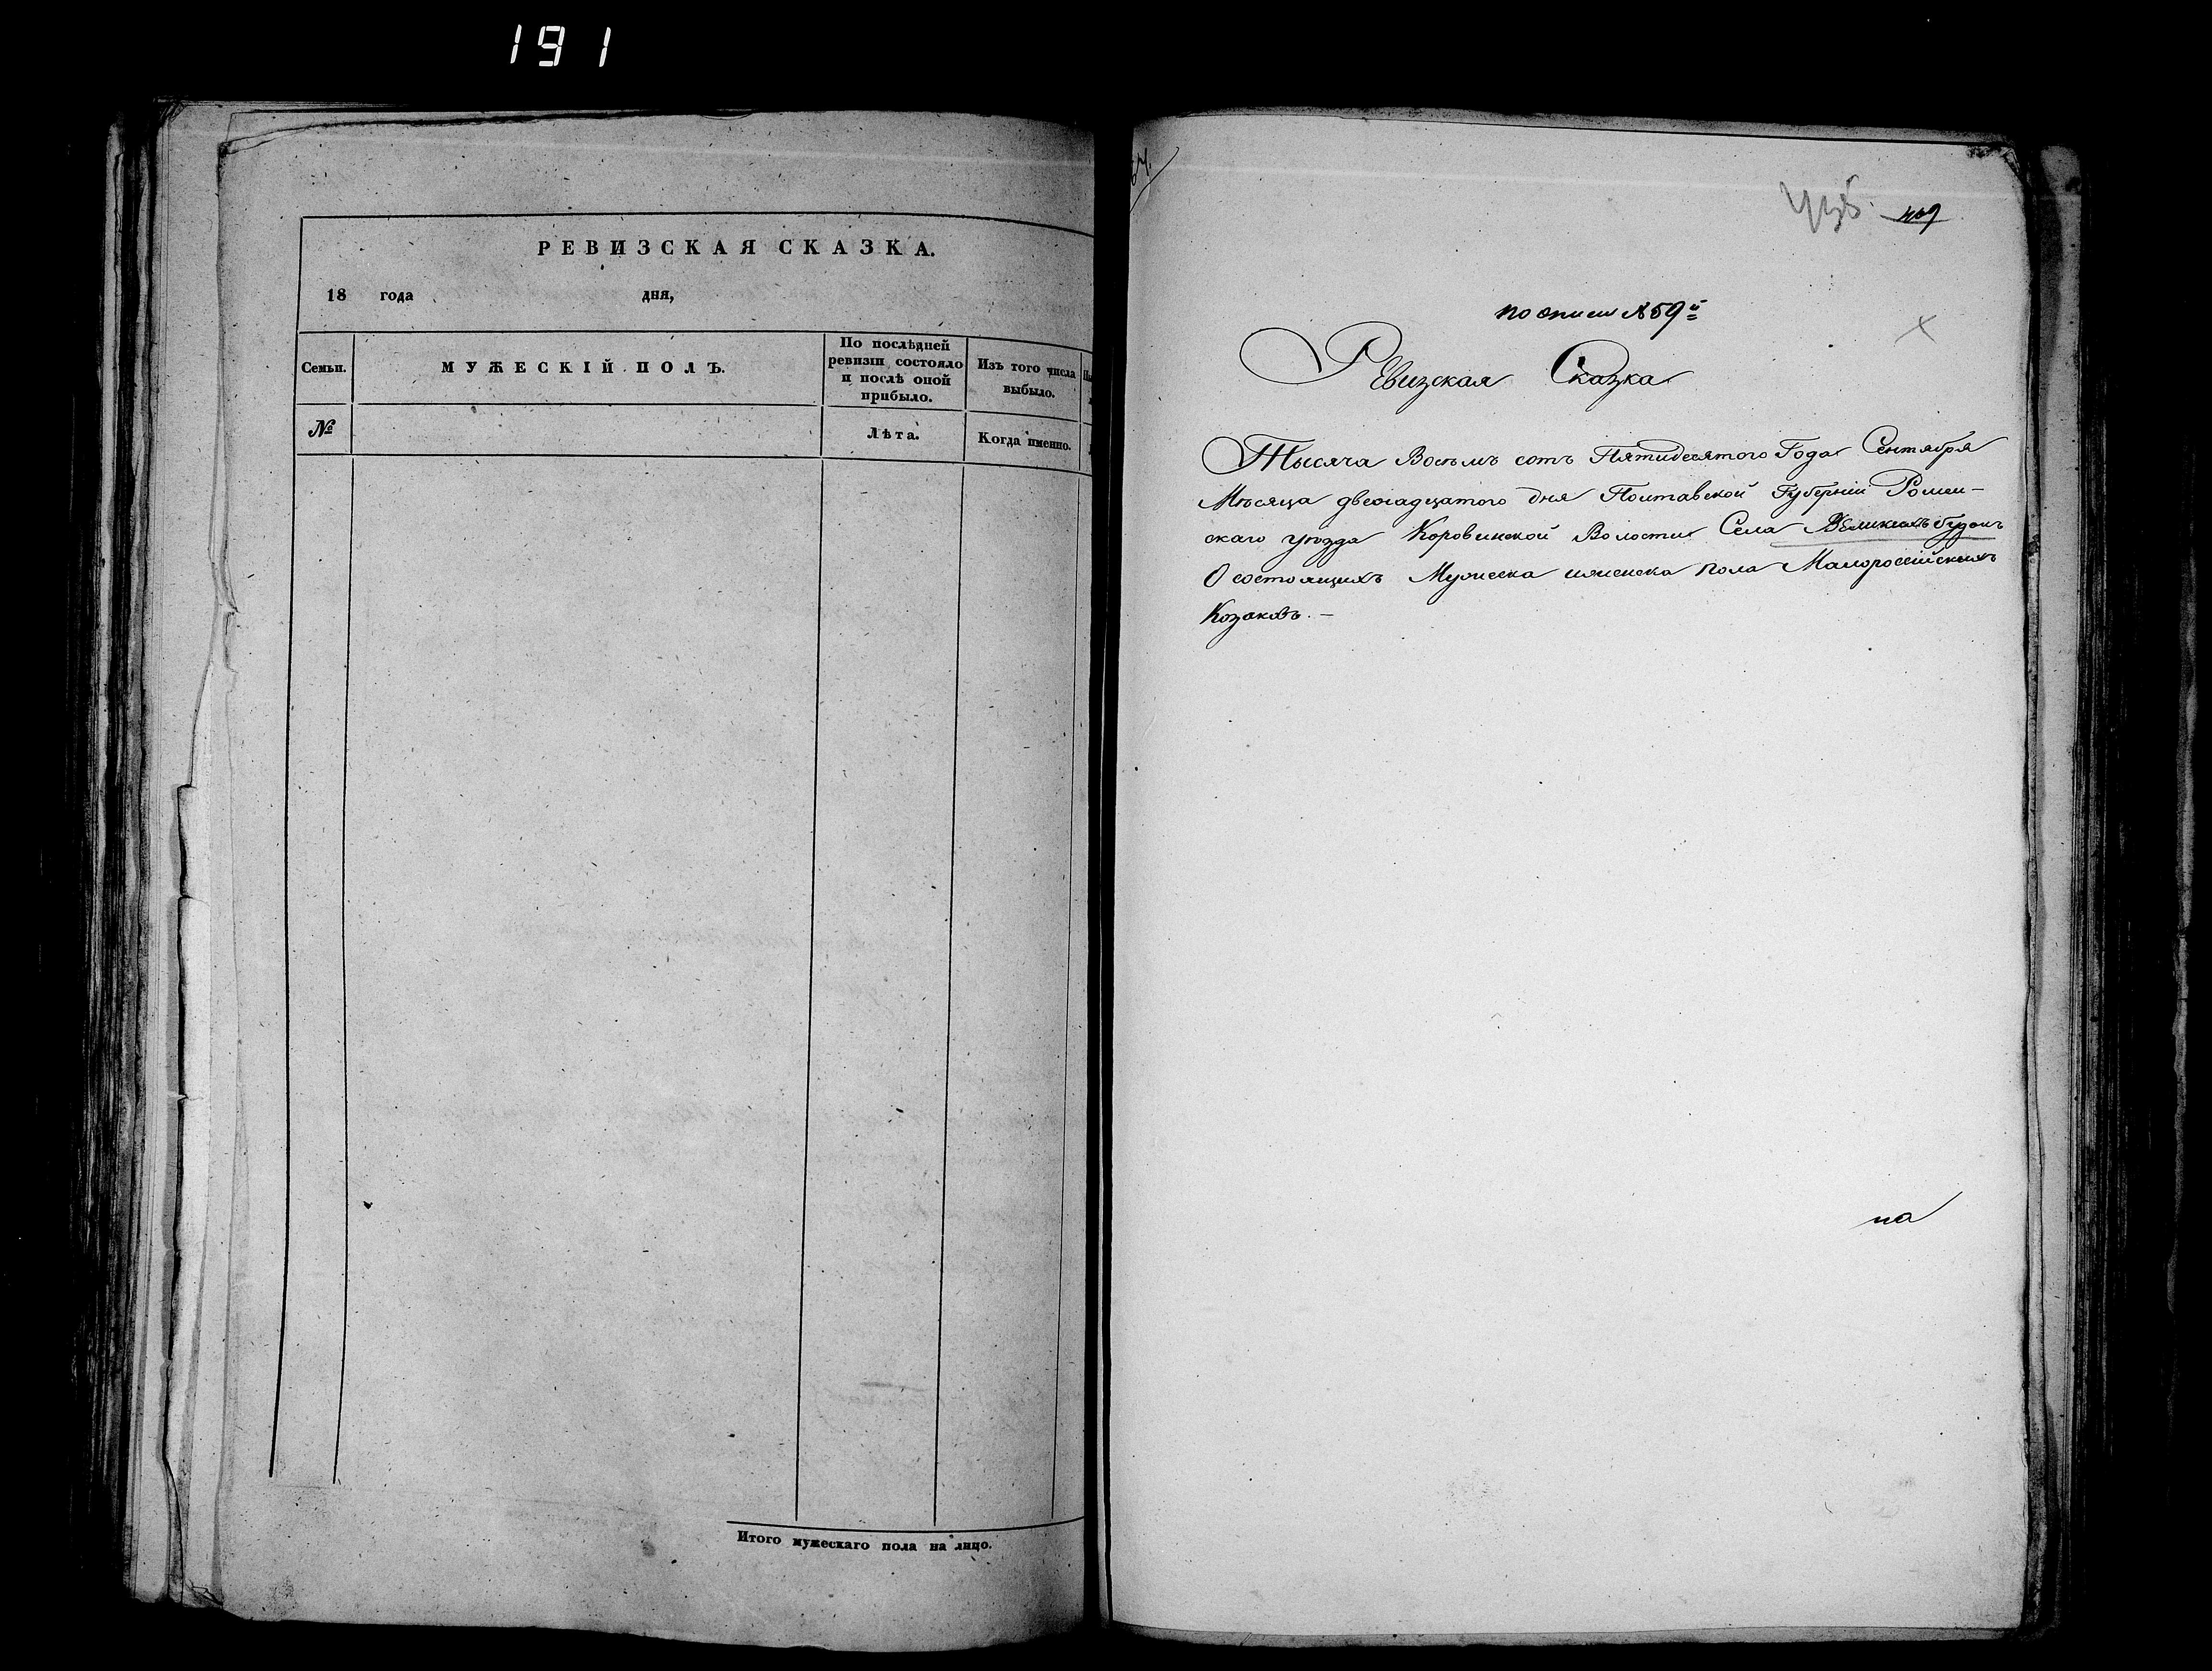 191
РЕВИЗСКАЯ СКАЗКА.
18 года дня,
Семьи.
МУЖЕСКІЙ ПОЛЪ.
По послѣдней
ревизіи состояло
и послѣ оной
прибыло.
Изъ того числа
выбыло.
№
Лѣта.
Когда именно.
Итого мужескаго пола на лицо.
по описи №59й
Ревизская Сказка
Тысяча Восемь сотъ Пятидесятого Года Сентября
Мѣсяца двенадцатого дня Полтавской Губерніи Ромен-
скаго уѣзда Коровинской Волости Села Великихъ Будокъ
О состоящихъ Мужеска и женска пола Малороссійскихъ
Козаковъ. –
на